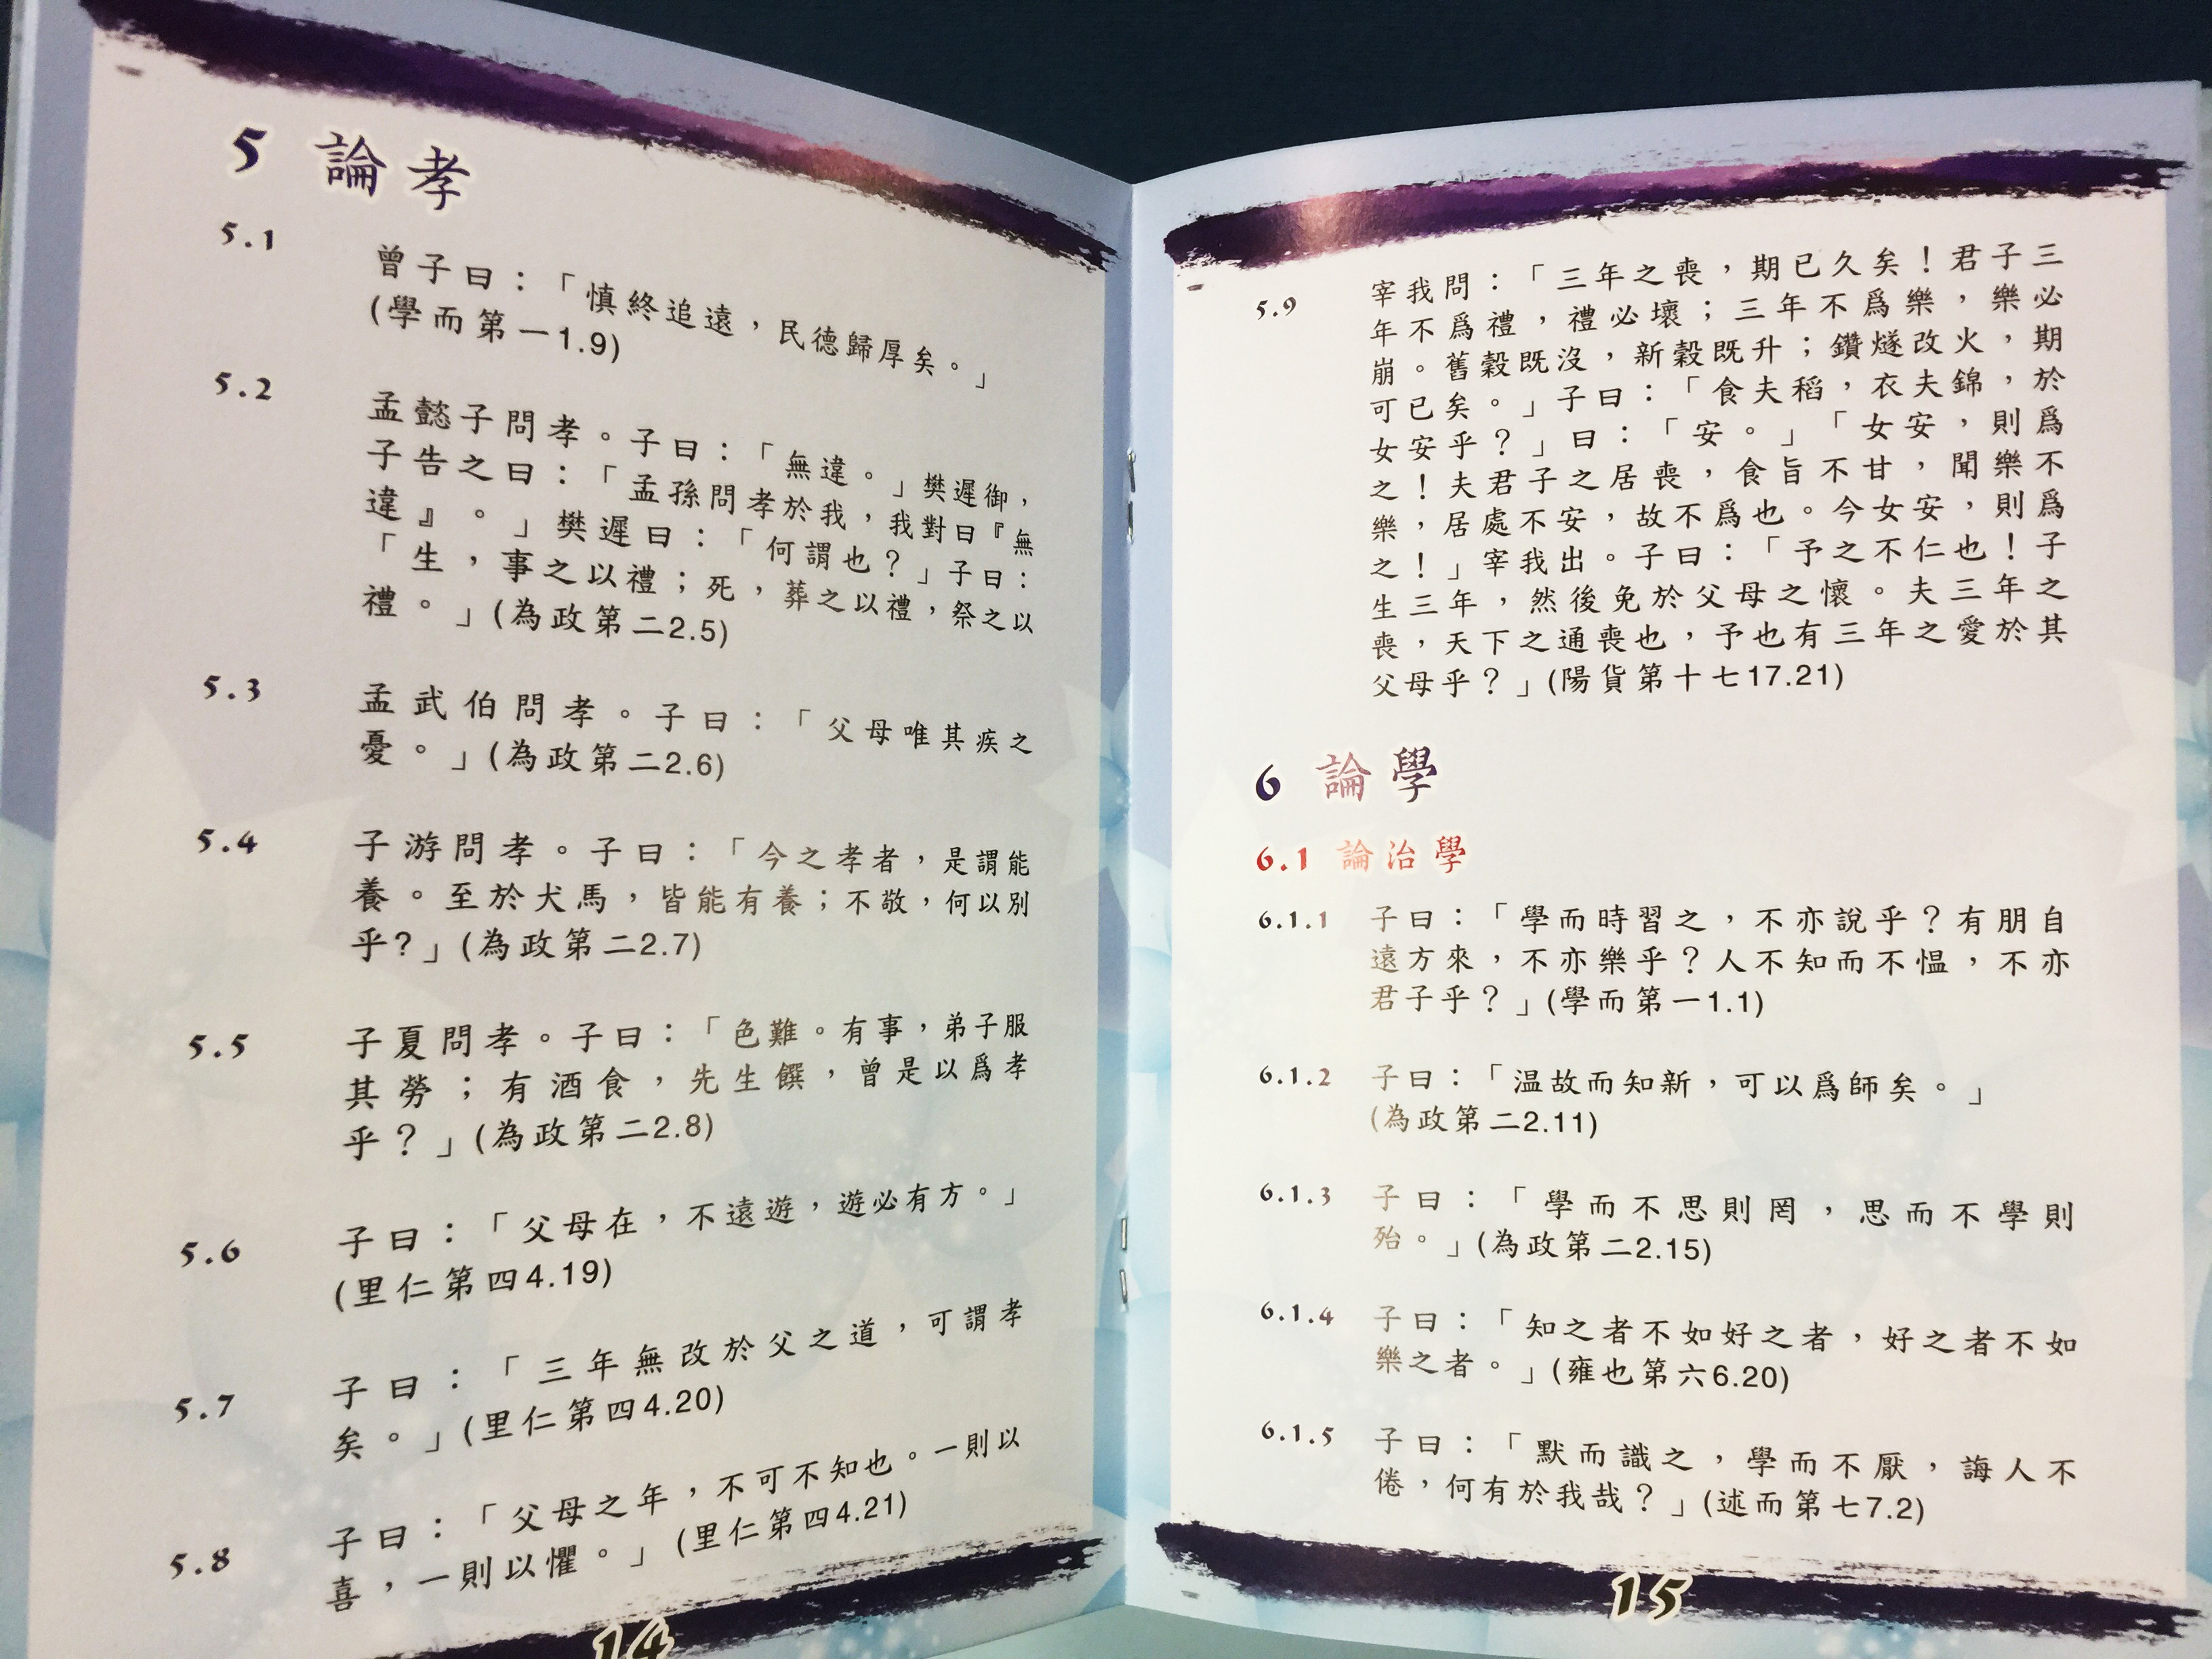 5 論孝
5.1 曾子曰：「慎終追遠，民德歸厚矣。」
(學而第一1.9)
5.2 孟懿子問孝。子曰：「無違。」樊遲御，
子告之曰：「孟孫問孝於我，我對曰『無
違』。」樊遲曰：「何謂也？」子曰：
「生，事之以禮；死，葬之以禮，祭之以
禮。」(為政第二2.5)
5.3 孟武伯問孝。子曰：「父母唯其疾之
憂。」(為政第二2.6)
5.4 子游問孝。子曰：「今之孝者，是謂能
養。至於犬馬，皆能有養；不敬，何以別
乎？」(為政第二2.7)
5.5 子夏問孝。子曰：「色難。有事，弟子服
其勞；有酒食，先生饌，曾是以爲孝
乎？」(為政第二2.8)
5.6 子曰：「父母在，不遠遊，遊必有方。」
(里仁第四4.19)
5.7 子曰：「三年無改於父之道，可謂孝
矣。」(里仁第四4.20)
5.8 子曰：「父母之年，不可不知也。一則以
喜，一則以懼。」(里仁第四4.21)
14
5.9 宰我問：「三年之喪，期已久矣！君子三
年不爲禮，禮必壞；三年不爲樂，樂必
崩。舊穀既沒，新穀既升；鑽燧改火，期
可已矣。」子曰：「食夫稻，衣夫錦，於
女安乎？」曰：「安。」「女安，則爲
之！夫君子之居喪，食旨不甘，聞樂不
樂，居處不安，故不爲也。今女安，則爲
之！」宰我出。子曰：「予之不仁也！子
生三年，然後免於父母之懷。夫三年之
喪，天下之通喪也，予也有三年之愛於其
父母乎？」(陽貨第十七17.21)
6 論學
6.1 論治學
6.1.1 子曰：「學而時習之，不亦說乎？有朋自
遠方來，不亦樂乎？人不知而不愠，不亦
君子乎？」(學而第一1.1)
6.1.2 子曰：「温故而知新，可以爲師矣。」
(為政第二2.11)
6.1.3 子曰：「學而不思則罔，思而不學則
殆。」(為政第二2.15)
6.1.4 子曰：「知之者不如好之者，好之者不如
樂之者。」(雍也第六6.20)
6.1.5 子曰：「默而識之，學而不厭，誨人不
倦，何有於我哉？」(述而第七7.2)
15